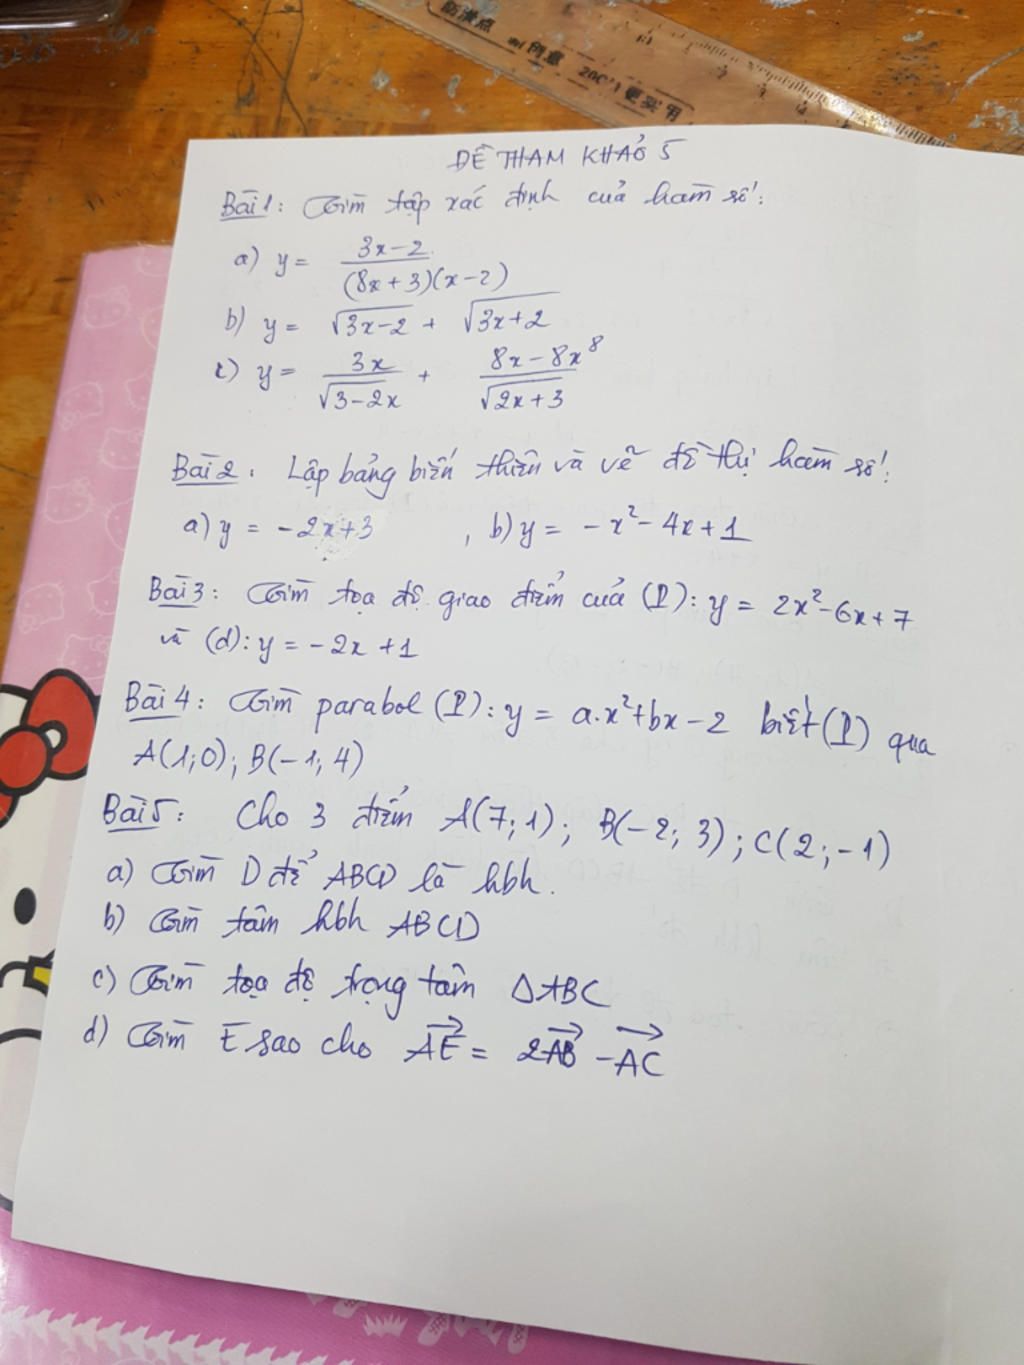 ĐỀ THAM KHẢO 5
Bài 1: Tìm tập xác định của hàm số:
a) y = (3x-2)/((8x+3)(x-2))
b) y = √(3x-2) + √(3x+2)
c) y = 3x/√(3-2x) + (8x-8x⁸)/√(2x+3)
Bài 2: Lập bảng biến thiên và vẽ đồ thị hàm số:
a) y = -2x+3 , b) y = -x²-4x+1
Bài 3: Tìm tọa độ giao điểm của (P): y = 2x²-6x+7
và (d): y = -2x+1
Bài 4: Tìm parabol (P): y = a.x²+bx-2 biết (P) qua
A(1;0); B(-1;4)
Bài 5: Cho 3 điểm A(7;1); B(-2;3); C(2;-1)
a) Tìm D để ABCD là hbh.
b) Tìm tâm hbh ABCD
c) Tìm tọa độ trọng tâm ΔABC
d) Tìm E sao cho AE⃗ = 2AB⃗ - AC⃗